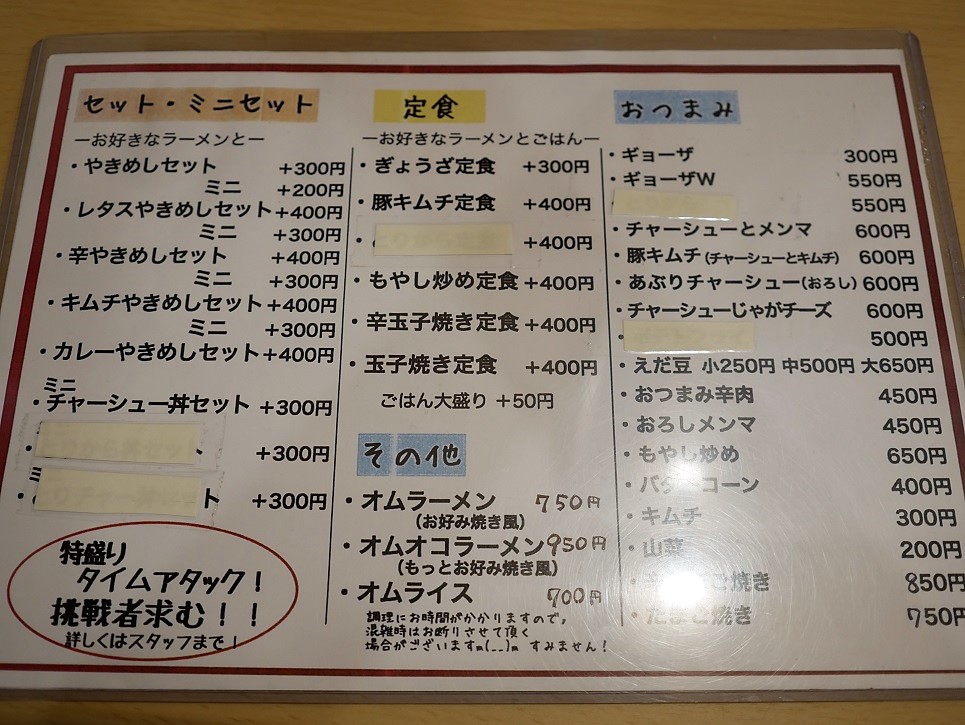 セット・ミニセット
ーお好きなラーメンとー
・やきめしセット +300円
ミニ +200円
・レタスやきめしセット+400円
ミニ +300円
・辛やきめしセット +400円
ミニ +300円
・キムチやきめしセット+400円
ミニ +300円
・カレーやきめしセット+400円
ミニ
・チャーシュー丼セット +300円
・ +300円
・ ト +300円
特盛り
タイムアタック!
挑戦者求む!!
詳しくはスタッフまで!
定食
ーお好きなラーメンとごはんー
・ぎょうざ定食 +300円
・豚キムチ定食 +400円
・ +400円
・もやし炒め定食 +400円
・辛玉子焼き定食 +400円
・玉子焼き定食 +400円
ごはん大盛り +50円
その他
・オムラーメン 750円
(お好み焼き風)
・オムオコラーメン950円
(もっとお好み焼き風)
・オムライス 700円
調理にお時間がかかりますので,
混雑時はお断りさせて頂く
場合がございますm(__)m すみません!
おつまみ
・ギョーザ 300円
・ギョーザW 550円
550円
・チャーシューとメンマ 600円
・豚キムチ(チャーシューとキムチ) 600円
・あぶりチャーシュー(おろし) 600円
・チャーシューじゃがチーズ 600円
・ 500円
・えだ豆 小250円 中500円 大650円
・おつまみ辛肉 450円
・おろしメンマ 450円
・もやし炒め 650円
・バターコーン 400円
・キムチ 300円
・山菜 200円
・ 焼き 850円
・たまご焼き 750円